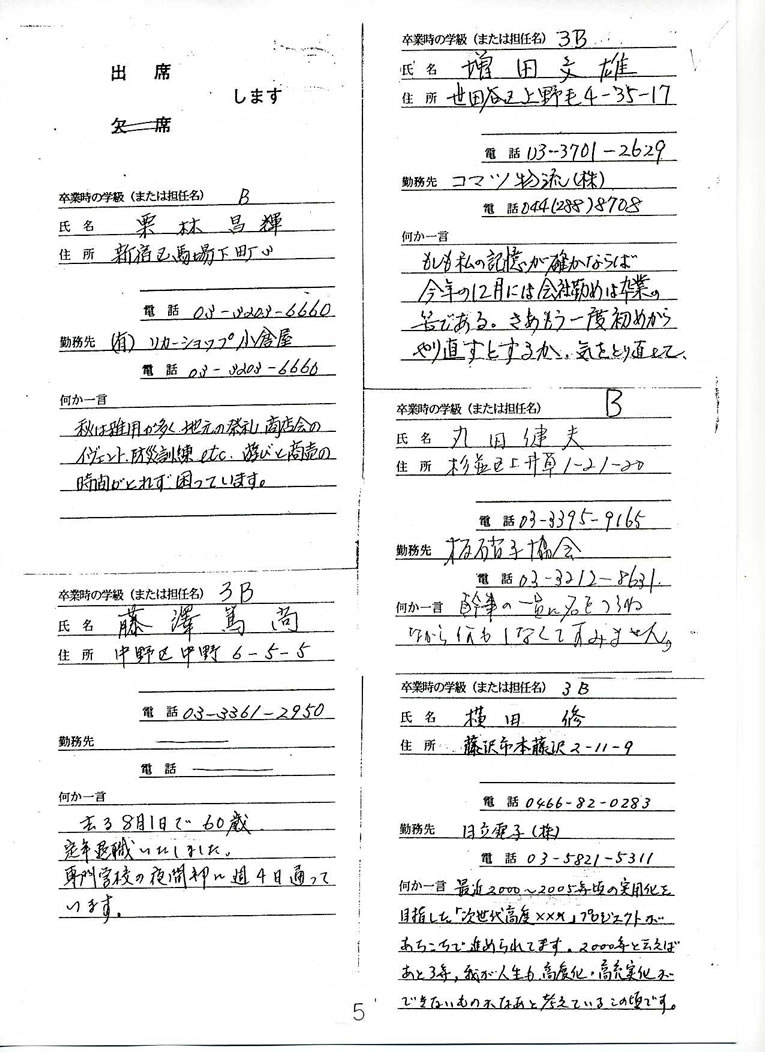 出席
します
欠席
卒業時の学級（または担任名） B
氏名 栗林昌輝
住所 新宿区馬場下町
電話 03-3203-6660
勤務先 (有) リカーショップ小倉屋
電話 03-3203-6660
何か一言
秋は雑用が多く、地元の祭礼、商店会の
イヴェント、防災訓練etc. 遊びと商売の
時間がとれず困っています。
卒業時の学級（または担任名） 3B
氏名 藤澤篤尚
住所 中野区中野 6-5-5
電話 03-3361-2950
勤務先
電話
何か一言
去る8月1日で60歳
定年退職いたしました。
専門学校の夜間部に週4日通って
います。
卒業時の学級（または担任名） 3B
氏名 増田文雄
住所 世田谷区上野毛4-35-17
電話 03-3701-2629
勤務先 コマツ物流(株)
電話 044(288)8708
何か一言
もしも私の記憶が確かならば
今年の12月には会社勤めは卒業の
筈である。さあもう一度初めから
やり直すとするか、気をとり直して、
卒業時の学級（または担任名） B
氏名 丸田健夫
住所 杉並区上井草1-21-20
電話 03-3395-9165
勤務先 板硝子協会
電話 03-3212-8631.
何か一言 幹事の一員に名をつらね
ながら何もしなくてすみません。
卒業時の学級（または担任名） 3B
氏名 横田 修
住所 藤沢市本藤沢2-11-9
電話 0466-82-0283
勤務先 日立電子(株)
電話 03-5821-5311
何か一言 最近2000～2005年頃の実用化を
目指した「次世代高度×××」プロジェクトが
あちこちで進められてます。2000年と云えば
あと3年, 我が人生も高度化・高充実化が
できないものかなあと考えているこの頃です。
5